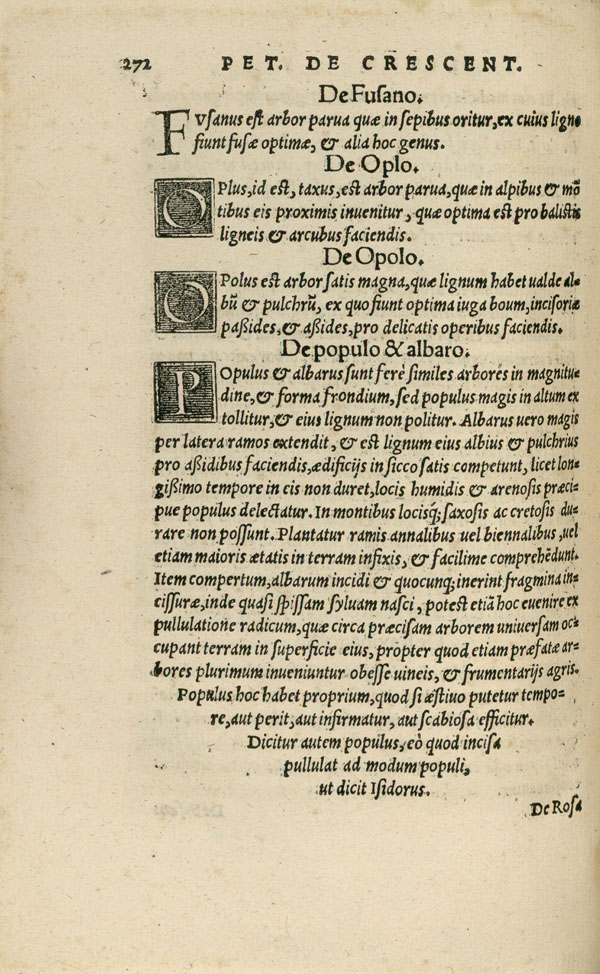 272 PET. DE CRESCENT.
De Fusano.
FVsanus est arbor parua quæ in sepibus oritur, ex cuius ligno
fiunt fusæ optimæ, & alia hoc genus.
De Oplo.
OPlus, id est, taxus, est arbor parua, quæ in alpibus & mō
tibus eis proximis inuenitur, quæ optima est pro balistis
ligneis & arcubus faciendis.
De Opolo.
OPolus est arbor satis magna, quæ lignum habet ualde al-
bū & pulchrū, ex quo fiunt optima iuga boum, incisoria
paßides, & aßides, pro delicatis operibus faciendis.
De populo & albaro.
POpulus & albarus sunt ferè similes arbores in magnitu-
dine, & forma frondium, sed populus magis in altum ex
tollitur, & eius lignum non politur. Albarus uero magis
per latera ramos extendit, & est lignum eius albius & pulchrius
pro aßidibus faciendis, ædificijs in sicco satis competunt, licet lon-
gißimo tempore in eis non duret, locis humidis & arenosis præci-
pue populus delectatur. In montibus locisq; saxosis ac cretosis du-
rare non possunt. Plantatur ramis annalibus uel biennalibus, uel
etiam maioris ætatis in terram infixis, & facilime comprehēdunt.
Item compertum, albarum incidi & quocunq; inerint fragmina in-
cissuræ, inde quasi spissam syluam nasci, potest etiā hoc euenire ex
pullulatione radicum, quæ circa præcisam arborem uniuersam oc-
cupant terram in superficie eius, propter quod etiam præfatæ ar-
bores plurimum inueniuntur obesse uineis, & frumentarijs agris.
Populus hoc habet proprium, quod si æstiuo putetur tempo-
re, aut perit, aut infirmatur, aut scabiosa efficitur.
Dicitur autem populus, eò quod incisa
pullulat ad modum populi,
ut dicit Isidorus.
De Rosa